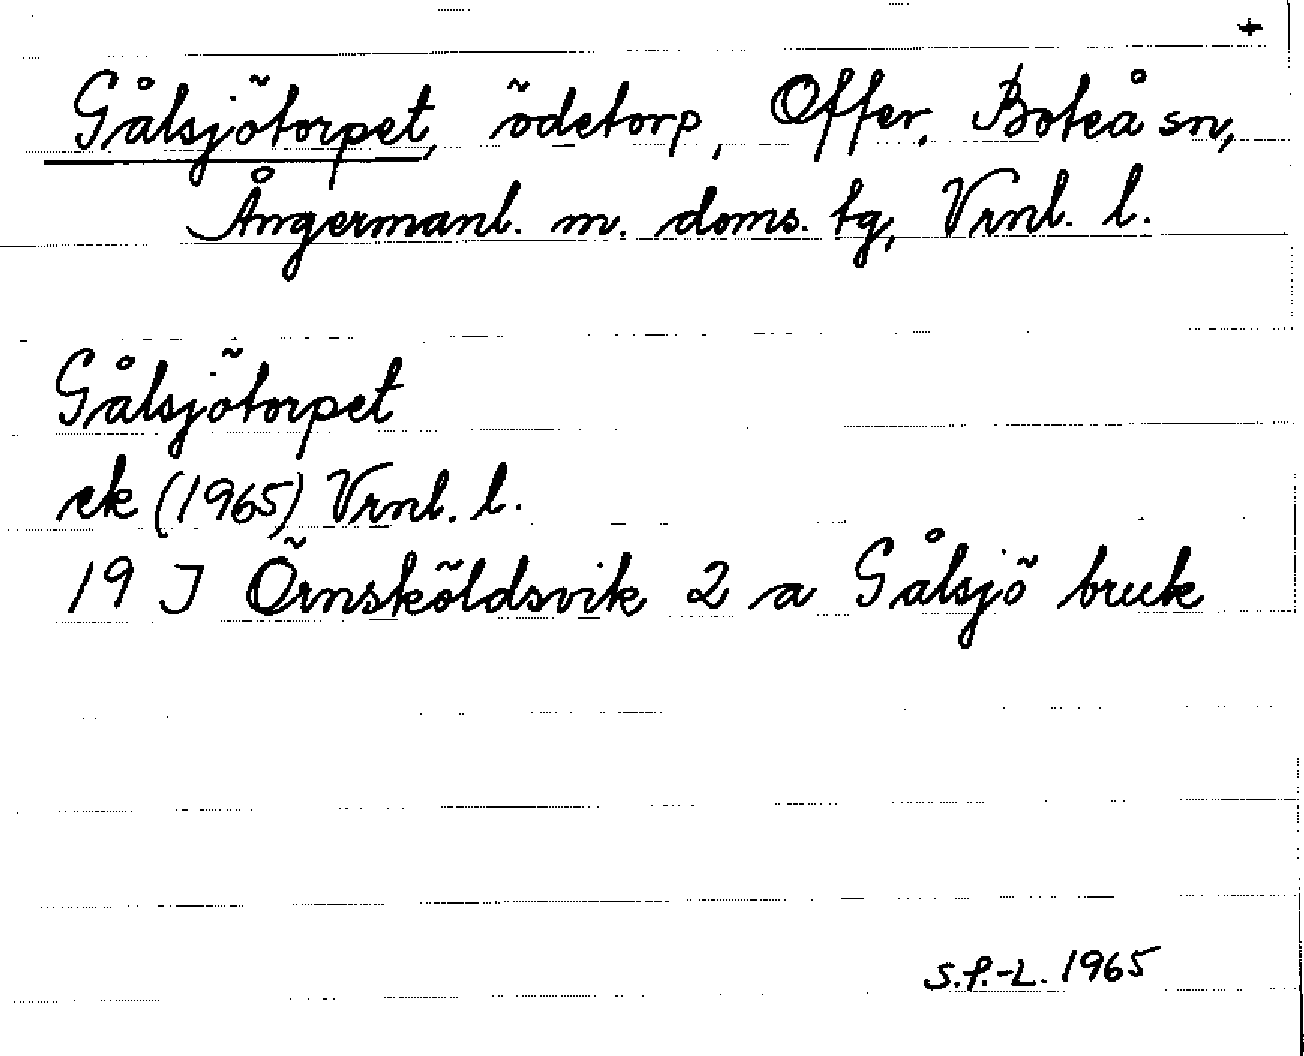 +
Gålsjötorpet, ödetorp, Offer, Boteå sn,
Ångermanl. m. doms. tg, Vrnl. l.
Gålsjötorpet
ek (1965) Vrnl. l.
19 J Örnsköldsvik 2 a Gålsjö bruk
S.P.-L. 1965